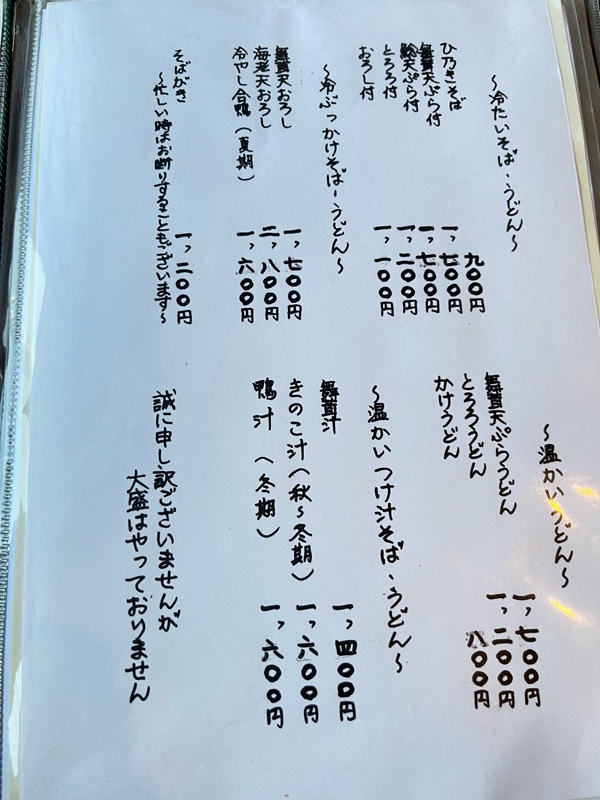 〜冷たいそば・うどん〜
ひ乃きそば 九〇〇円
舞茸天ぷら付 一,七〇〇円
鯰天ぷら付 一,七〇〇円
とろろ付 一,二〇〇円
おろし付 一,一〇〇円
〜冷ぶっかけそば・うどん〜
舞茸天おろし 一,七〇〇円
海老天おろし 二,八〇〇円
冷やし合鴨(夏期) 一,六〇〇円
そばがき 一,二〇〇円
〜忙しい時はお断りすることもございます〜
〜温かいうどん〜
舞茸天ぷらうどん 一,七〇〇円
とろろうどん 一,二〇〇円
かけうどん 八〇〇円
〜温かいつけ汁そば・うどん〜
舞茸汁 一,四〇〇円
きのこ汁(秋〜冬期) 一,六〇〇円
鴨汁(冬期) 一,六〇〇円
誠に申し訳ございませんが
大盛はやっておりません